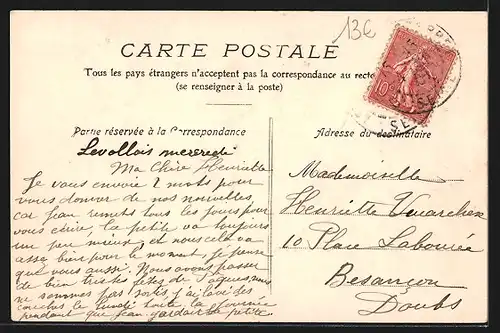 13€
CARTE POSTALE
Tous les pays étrangers n'acceptent pas la correspondance au recto
(se renseigner à la poste)
Partie réservée à la Correspondance
Adresse du destinataire
Levallois mercredi
Ma Chère Henriette
Je vous envoie 2 mots pour
vous donner de nos nouvelles
car Jean remets tous les jours pour
vous écrire, la petite va toujours
un peu mieux, et nous cela va
assez bien pour le moment, je pense
que vous aussi. Nous avons passer
de bien tristes fêtes de Pâques, nous
ne sommes pas sortis, j'ai lavé des
couches le lundi toute la journée
pendant que Jean gardait la petite.
Mademoiselle
Henriette
10 Place Labourée
Besançon
Doubs
10